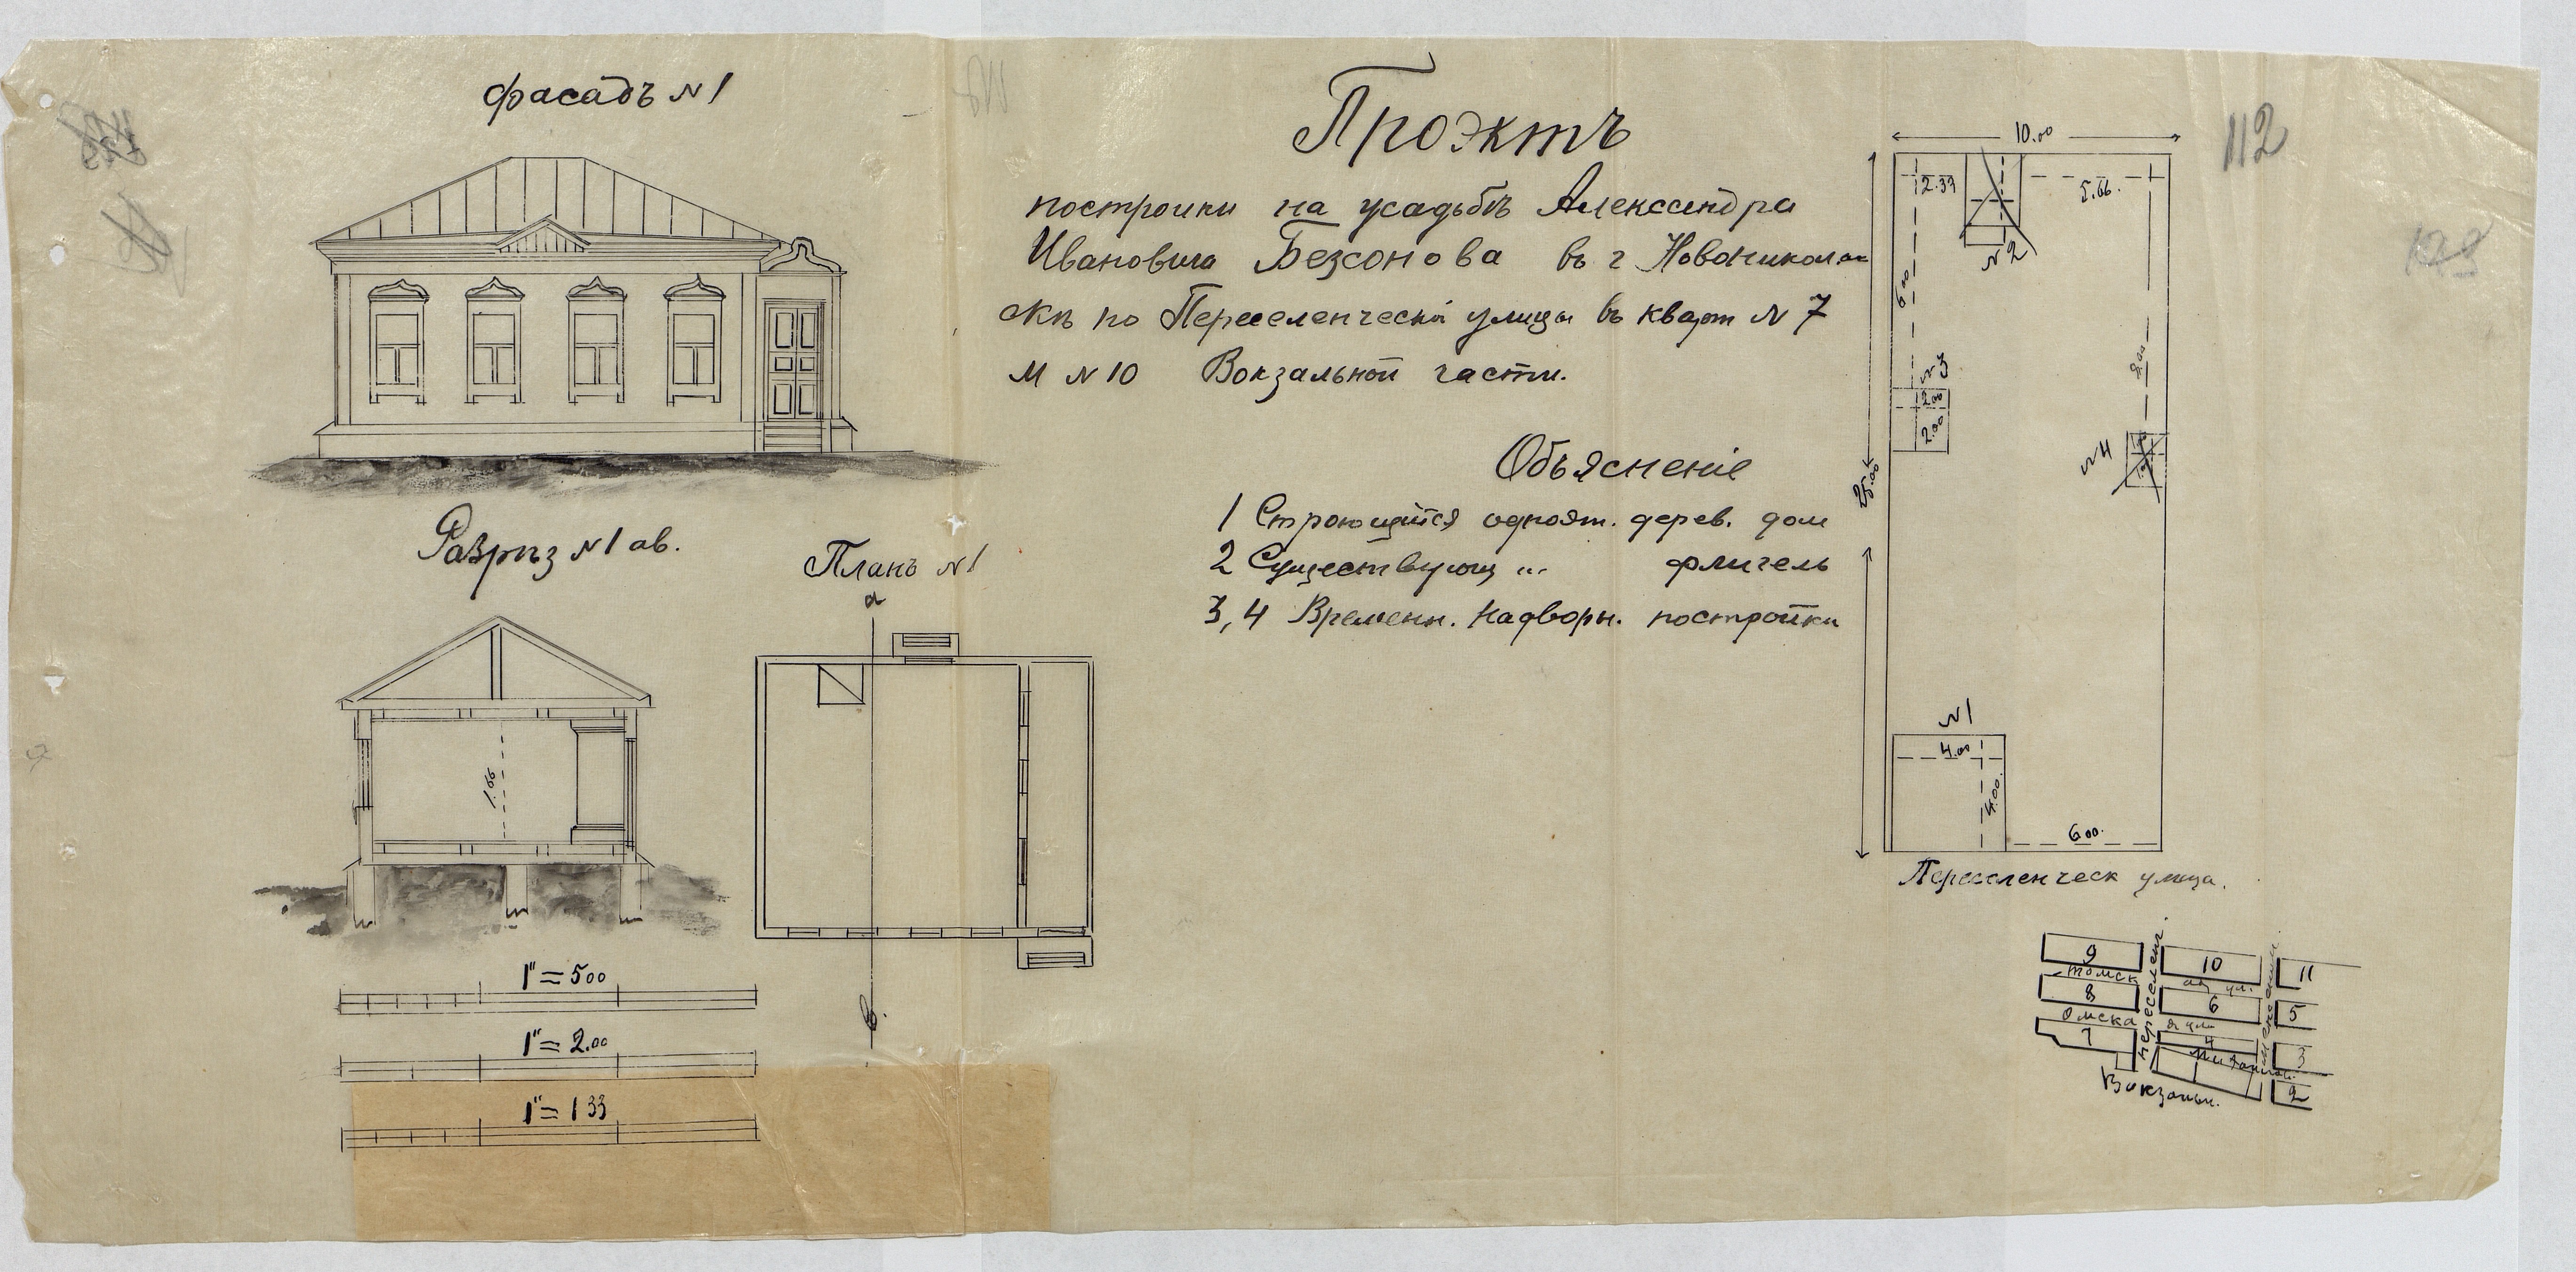 фасадъ №1
Проэктъ
постройки на усадьбѣ Александра
Ивановича Безсонова въ г Новоникола
скѣ по Переселенческ улицы въ кварт №7
М №10 Вокзальной части.
Объясненіе
1 Строющийся одноэт. дерев. дом
2 Существующ „ флигель
3, 4 Временн. надворн. постройки
Разрѣз №1 ав.
1.66
Планъ №1
а
в.
1"=500
1"=2.00
1"=133
112
10.00
2.33
5.66.
№2
6.00
№3
2.00
2.00
№4
25.00
№1
4.00
4.00.
6.00.
Переселенческ улица.
9
10
11
Томск
8
6
5
Омска
7
4
3
2
Переселенч.
Вокзальн.